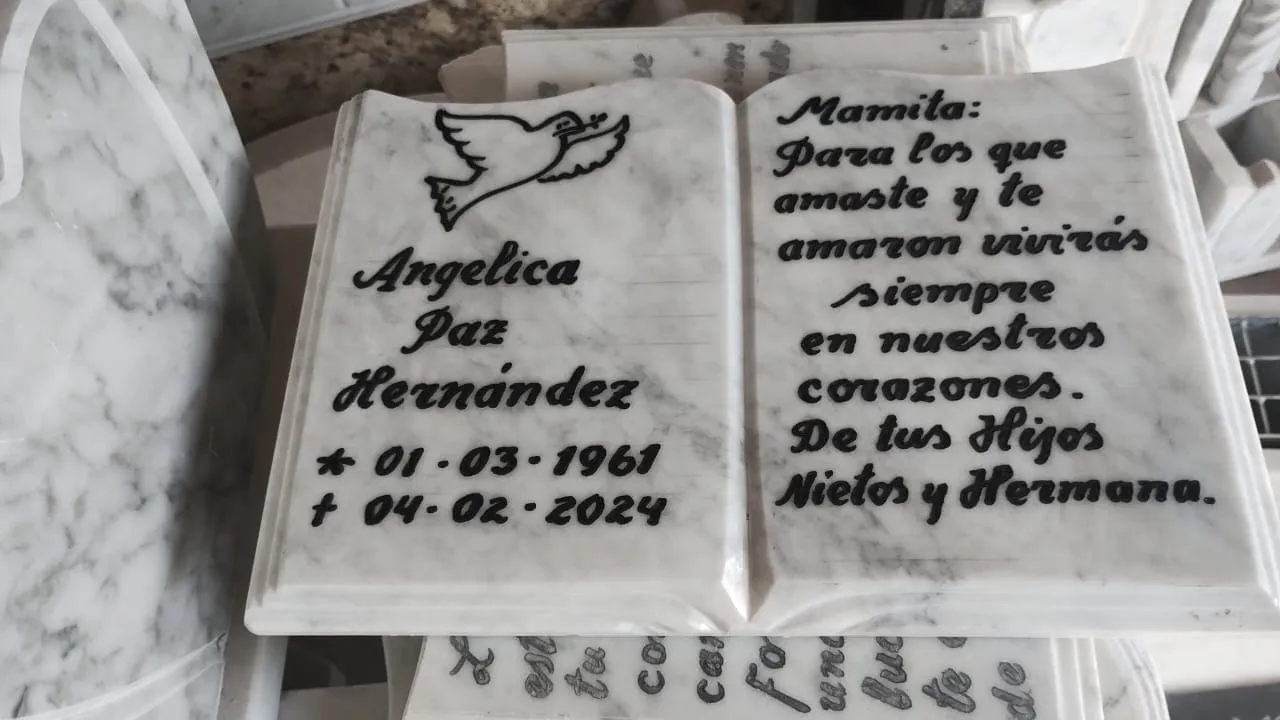 Angelica
Paz
Hernández
* 01·03·1961
† 04·02·2024
Mamita:
Para los que
amaste y te
amaron vivirás
siempre
en nuestros
corazones.
De tus Hijos
Nietos y Hermana.